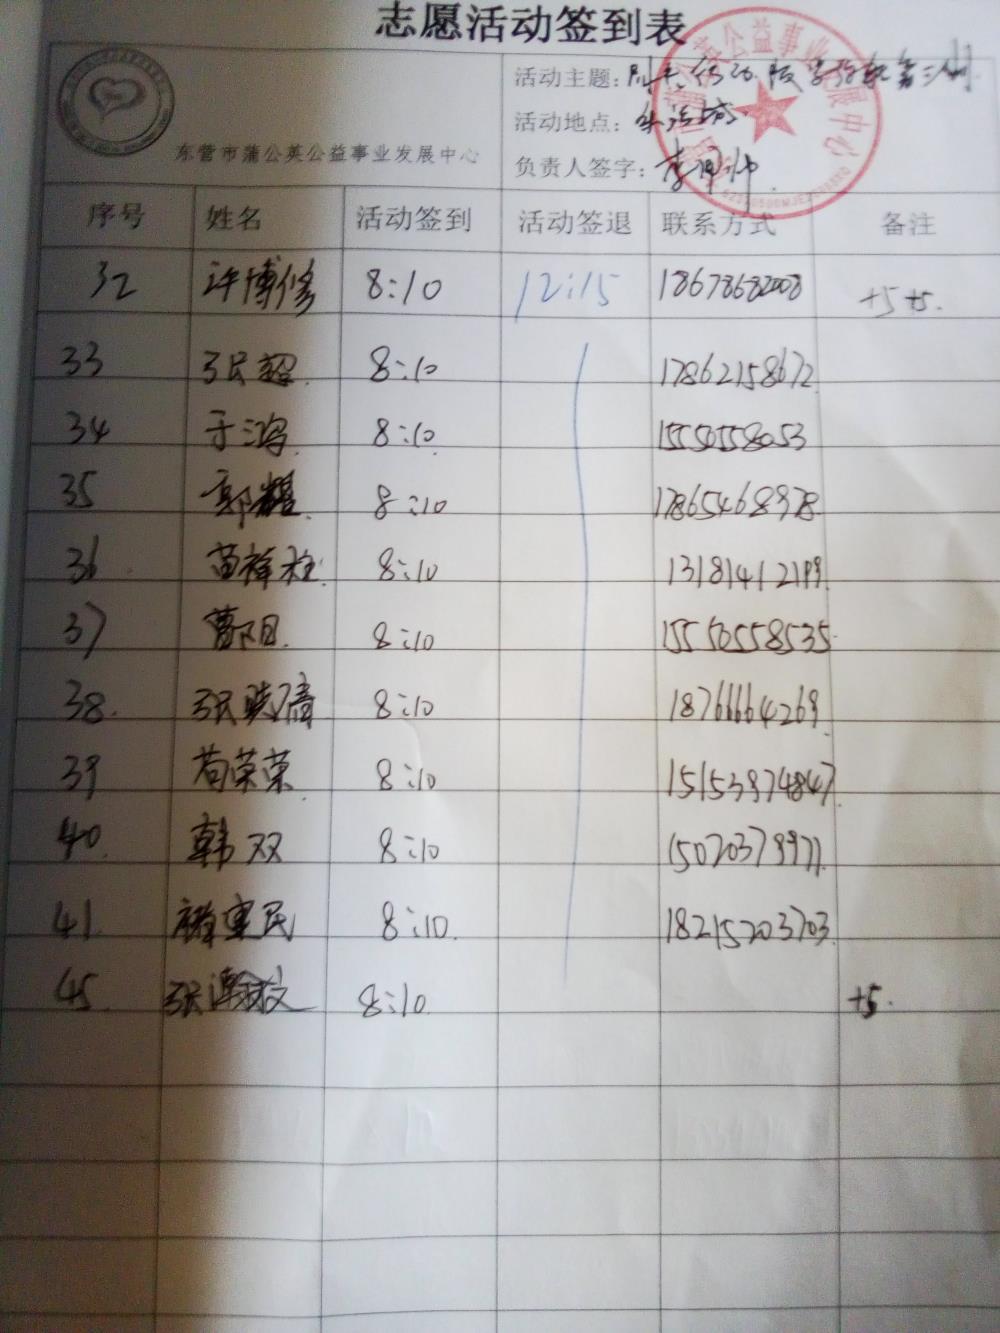 志愿活动签到表
东营市蒲公英公益事业发展中心
活动主题:
活动地点:
负责人签字:
序号 姓名 活动签到 活动签退 联系方式 备注
32 许博修 8:10 12:15 18678682008 +5 +5.
33 张超 8:10 17862158672
34 于鸿 8:10 15550558053
35 郭 8:10 17865468978
36 苗祥柱 8:10 13181412199
37 曹阳 8:10 15550558535
38. 张 8:10 18766664269
39 苟荣荣 8:10 15153974847
40. 韩双 8:10 15020379971
41. 民 8:10. 18215203703
45. 张 8:10 +5.